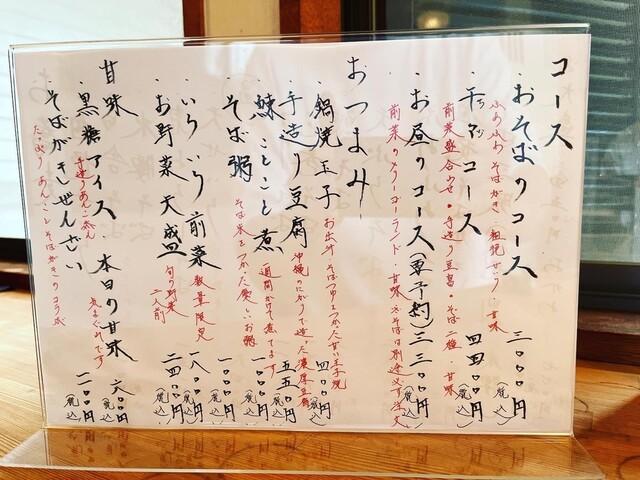 コース
・おそばのコース 三〇〇〇円(税込)
ふわふわそばがき・粗挽せいろ・甘味
四四〇〇円(税込)
前菜盛合わせ・手造り豆腐・そば二種・甘味
・お昼のコース(要予約) 三三〇〇円(税込)
おつまみ
・鍋焼玉子 四〇〇円(税込)
お出汁そばつゆをつかった甘い玉子焼
・手造り豆腐 五五〇円(税込)
沖縄のにがりで造った濃厚豆腐
・鰊ことこと煮 一〇〇〇円(税込)
一週間かけて煮てます
・そば粥 一〇〇〇円(税込)
そば米をつかった優しいお粥
・いろいろ前菜 一八〇〇円(税込)
数量限定
・お野菜天盛 二四〇〇円(税込)
旬の野菜
二人前
甘味
・黒糖アイス・本日の甘味 六〇〇円(税込)
・そばがきぜんざい 一二〇〇円(税込)
たっぷりあんことそばがきのコラボ